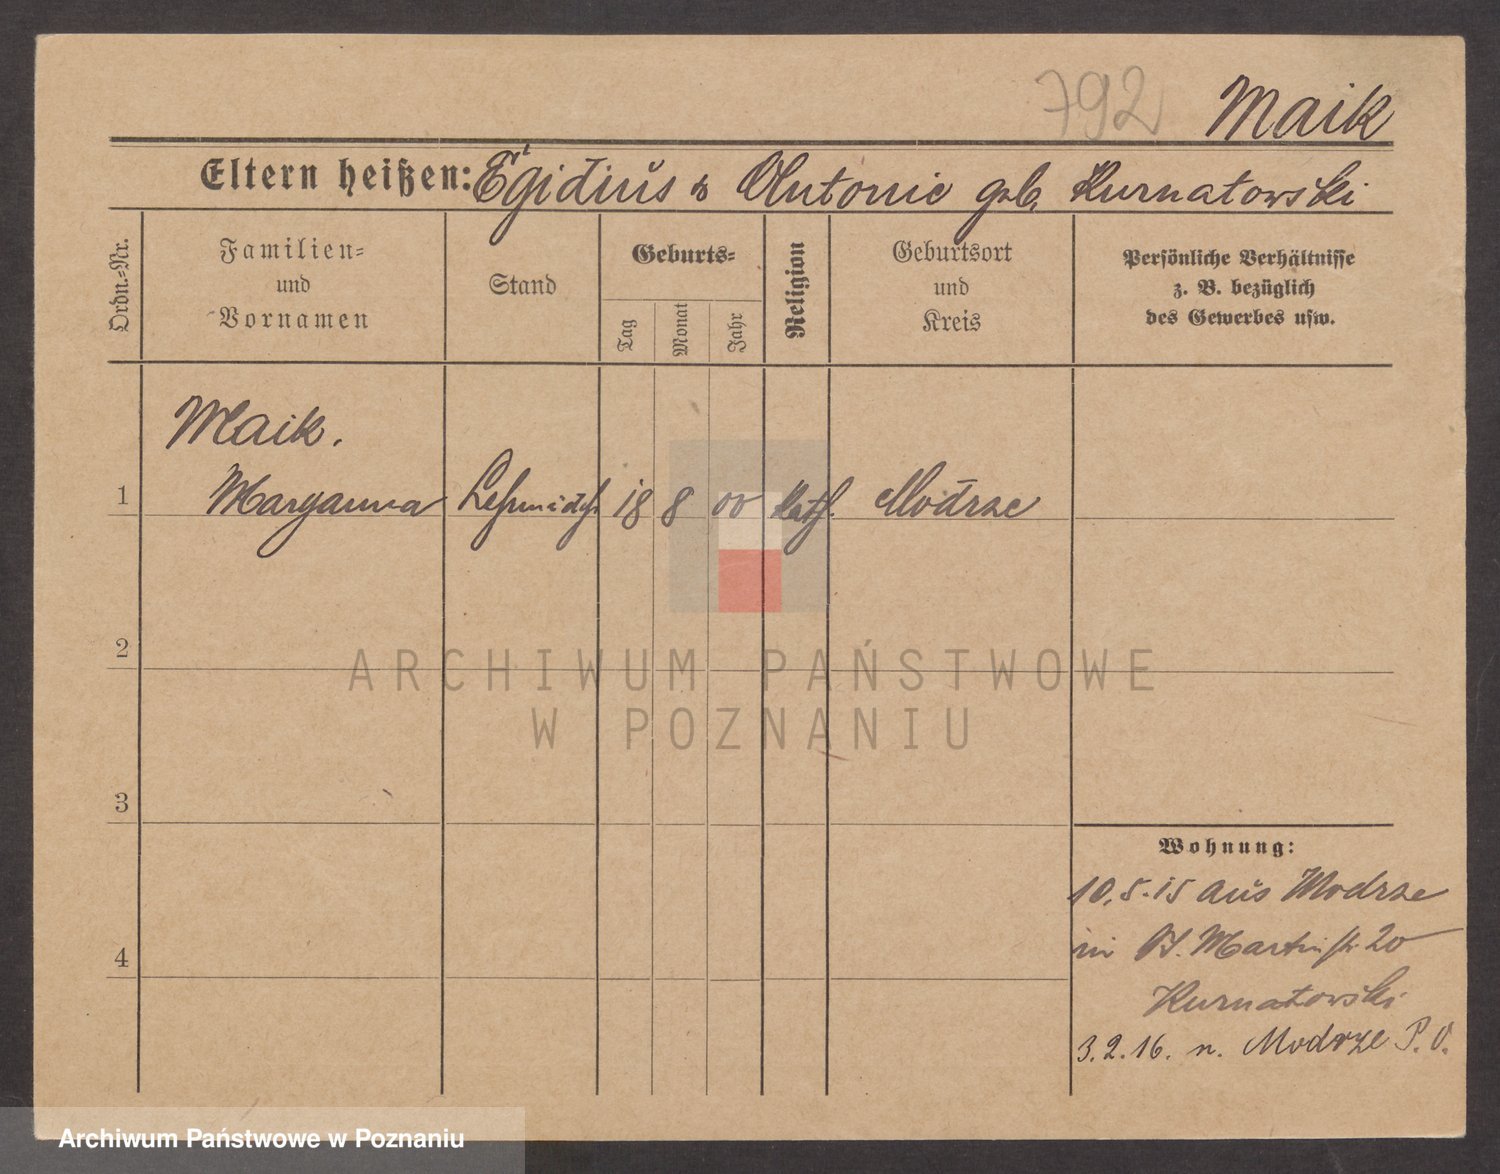 792 Maik
Eltern heißen: Egidius & Antonie geb. Kurnatowski
Ordn.-Nr.
Familien-
und
Vornamen
Stand
Geburts-
Tag
Monat
Jahr
Religion
Geburtsort
und
Kreis
Persönliche Verhältnisse
z. B. bezüglich
des Gewerbes usw.
Maik.
1 Maryanna Lehrmädch. 18 8 00 Kath. Modrze
2
3
4
Wohnung:
10.5.15 aus Modrze
in St. Martinstr. 20
Kurnatowski
3.2.16. n. Modrze P. O.
ARCHIWUM PAŃSTWOWE
W POZNANIU
Archiwum Państwowe w Poznaniu